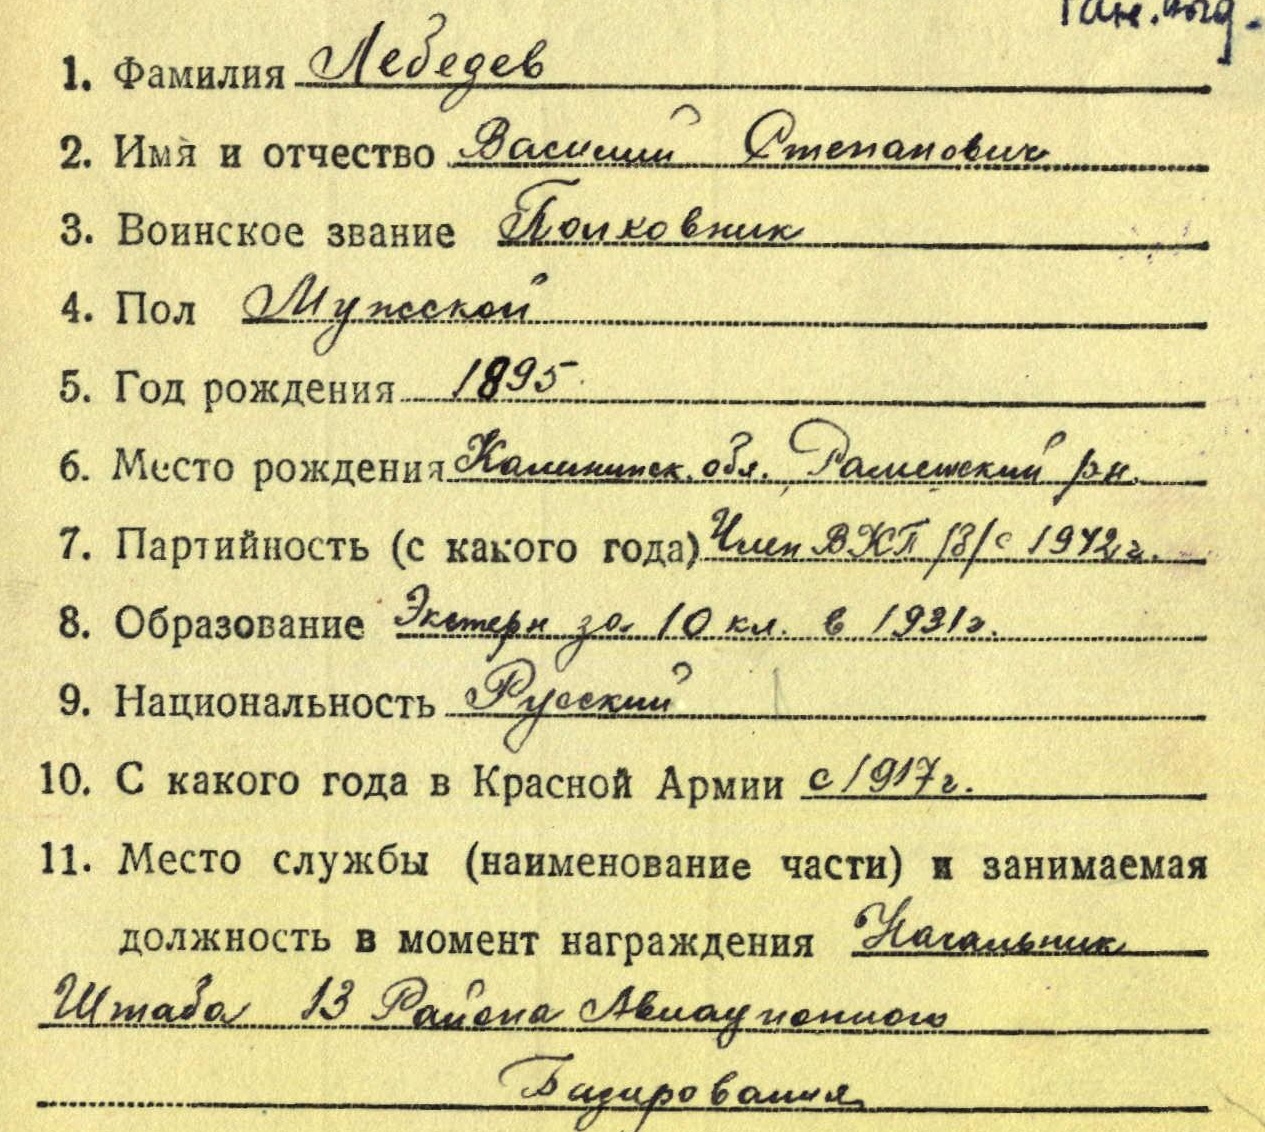 1. Фамилия Лебедев
2. Имя и отчество Василий Степанович
3. Воинское звание Полковник
4. Пол Мужской
5. Год рождения 1895
6. Место рождения Калининск. обл. Рамешский рн.
7. Партийность (с какого года) Член ВКП /б/ с 1942 г.
8. Образование Экстерн за 10 кл. в 1931 г.
9. Национальность Русский
10. С какого года в Красной Армии с 1917 г.
11. Место службы (наименование части) и занимаемая
должность в момент награждения Начальник
Штаба 13 Района Авиационного
Базирования